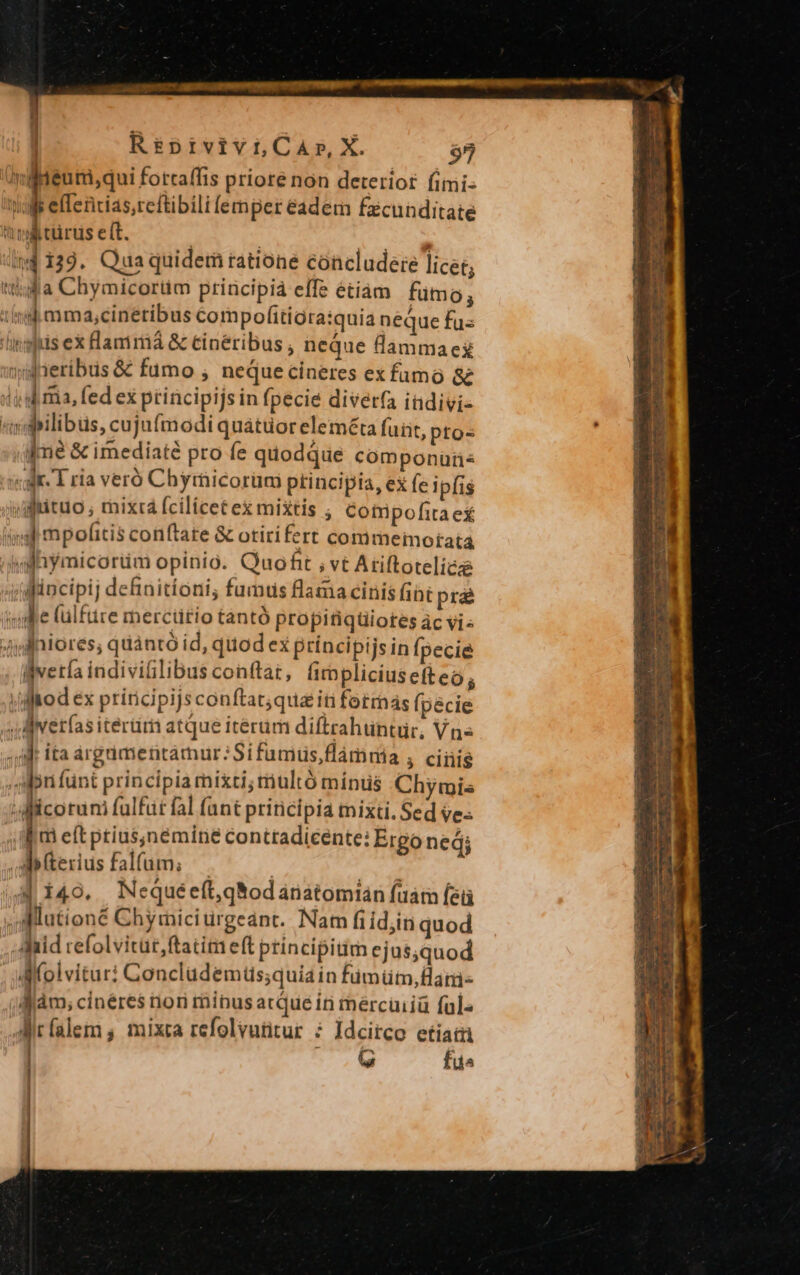 REDIVIVI, CAP, X. 97
qui fortaſſis priore non deterior ſimi-
eſſentias, reſtibili ſemper eadem fæcunditate
eſt.
139. Qua quidem ratione concludere licet,
Chymicorum principia eſſe etiam fumo,
cineribus compoſitiora: quia neque fu-
ex flamma & cineribus, neque flamma ex
& fumo, neque cineres ex fumo &
ſed ex principijs in ſpecie diverſa indivi-
cujuſmodi quatuor elemẽta ſunt, pro-
& imediatè pro ſe quodque componun-
Tria verò Chymicorum principia, ex ſe ipſis
mixta ſcilicet ex mixtis, compoſita ex
conſtare & oriri fert commemorata
opinio. Quo fit, vt Ariſtotelicæ
definitioni, fumus flama cinis ſint præ
ſulfure mercurio tantò propinqüiores ac vi-
quantò id, quod ex principijs in ſpecie
indiviſilibus conſtat, ſimplicius eſt eo,
ex principijs conſtat, quæ in formas ſpecie
iterùm atque iterùm diſtrahuntur. Vn-
ita argumentamur: Si fumus, flamma, cinis
ſunt principia mixti, multò minùs Chymi-
ſulfur ſal ſunt principia mixti. Sed ve-
eſt prius, nemine contradicente: Ergo neq;
falſum.
140. Neque eſt, qꝫod anatomian ſuam ſeu
Chymici urgeant. Nam ſi id, in quod
reſolvitur, ſtatim eſt principium ejus, quod
Concludemus; quia in fumum, flam-
cineres non minus atque in mercuriũ ſul-
ſalem, mixta reſolvuntur: Idcirco etiam
G fu-